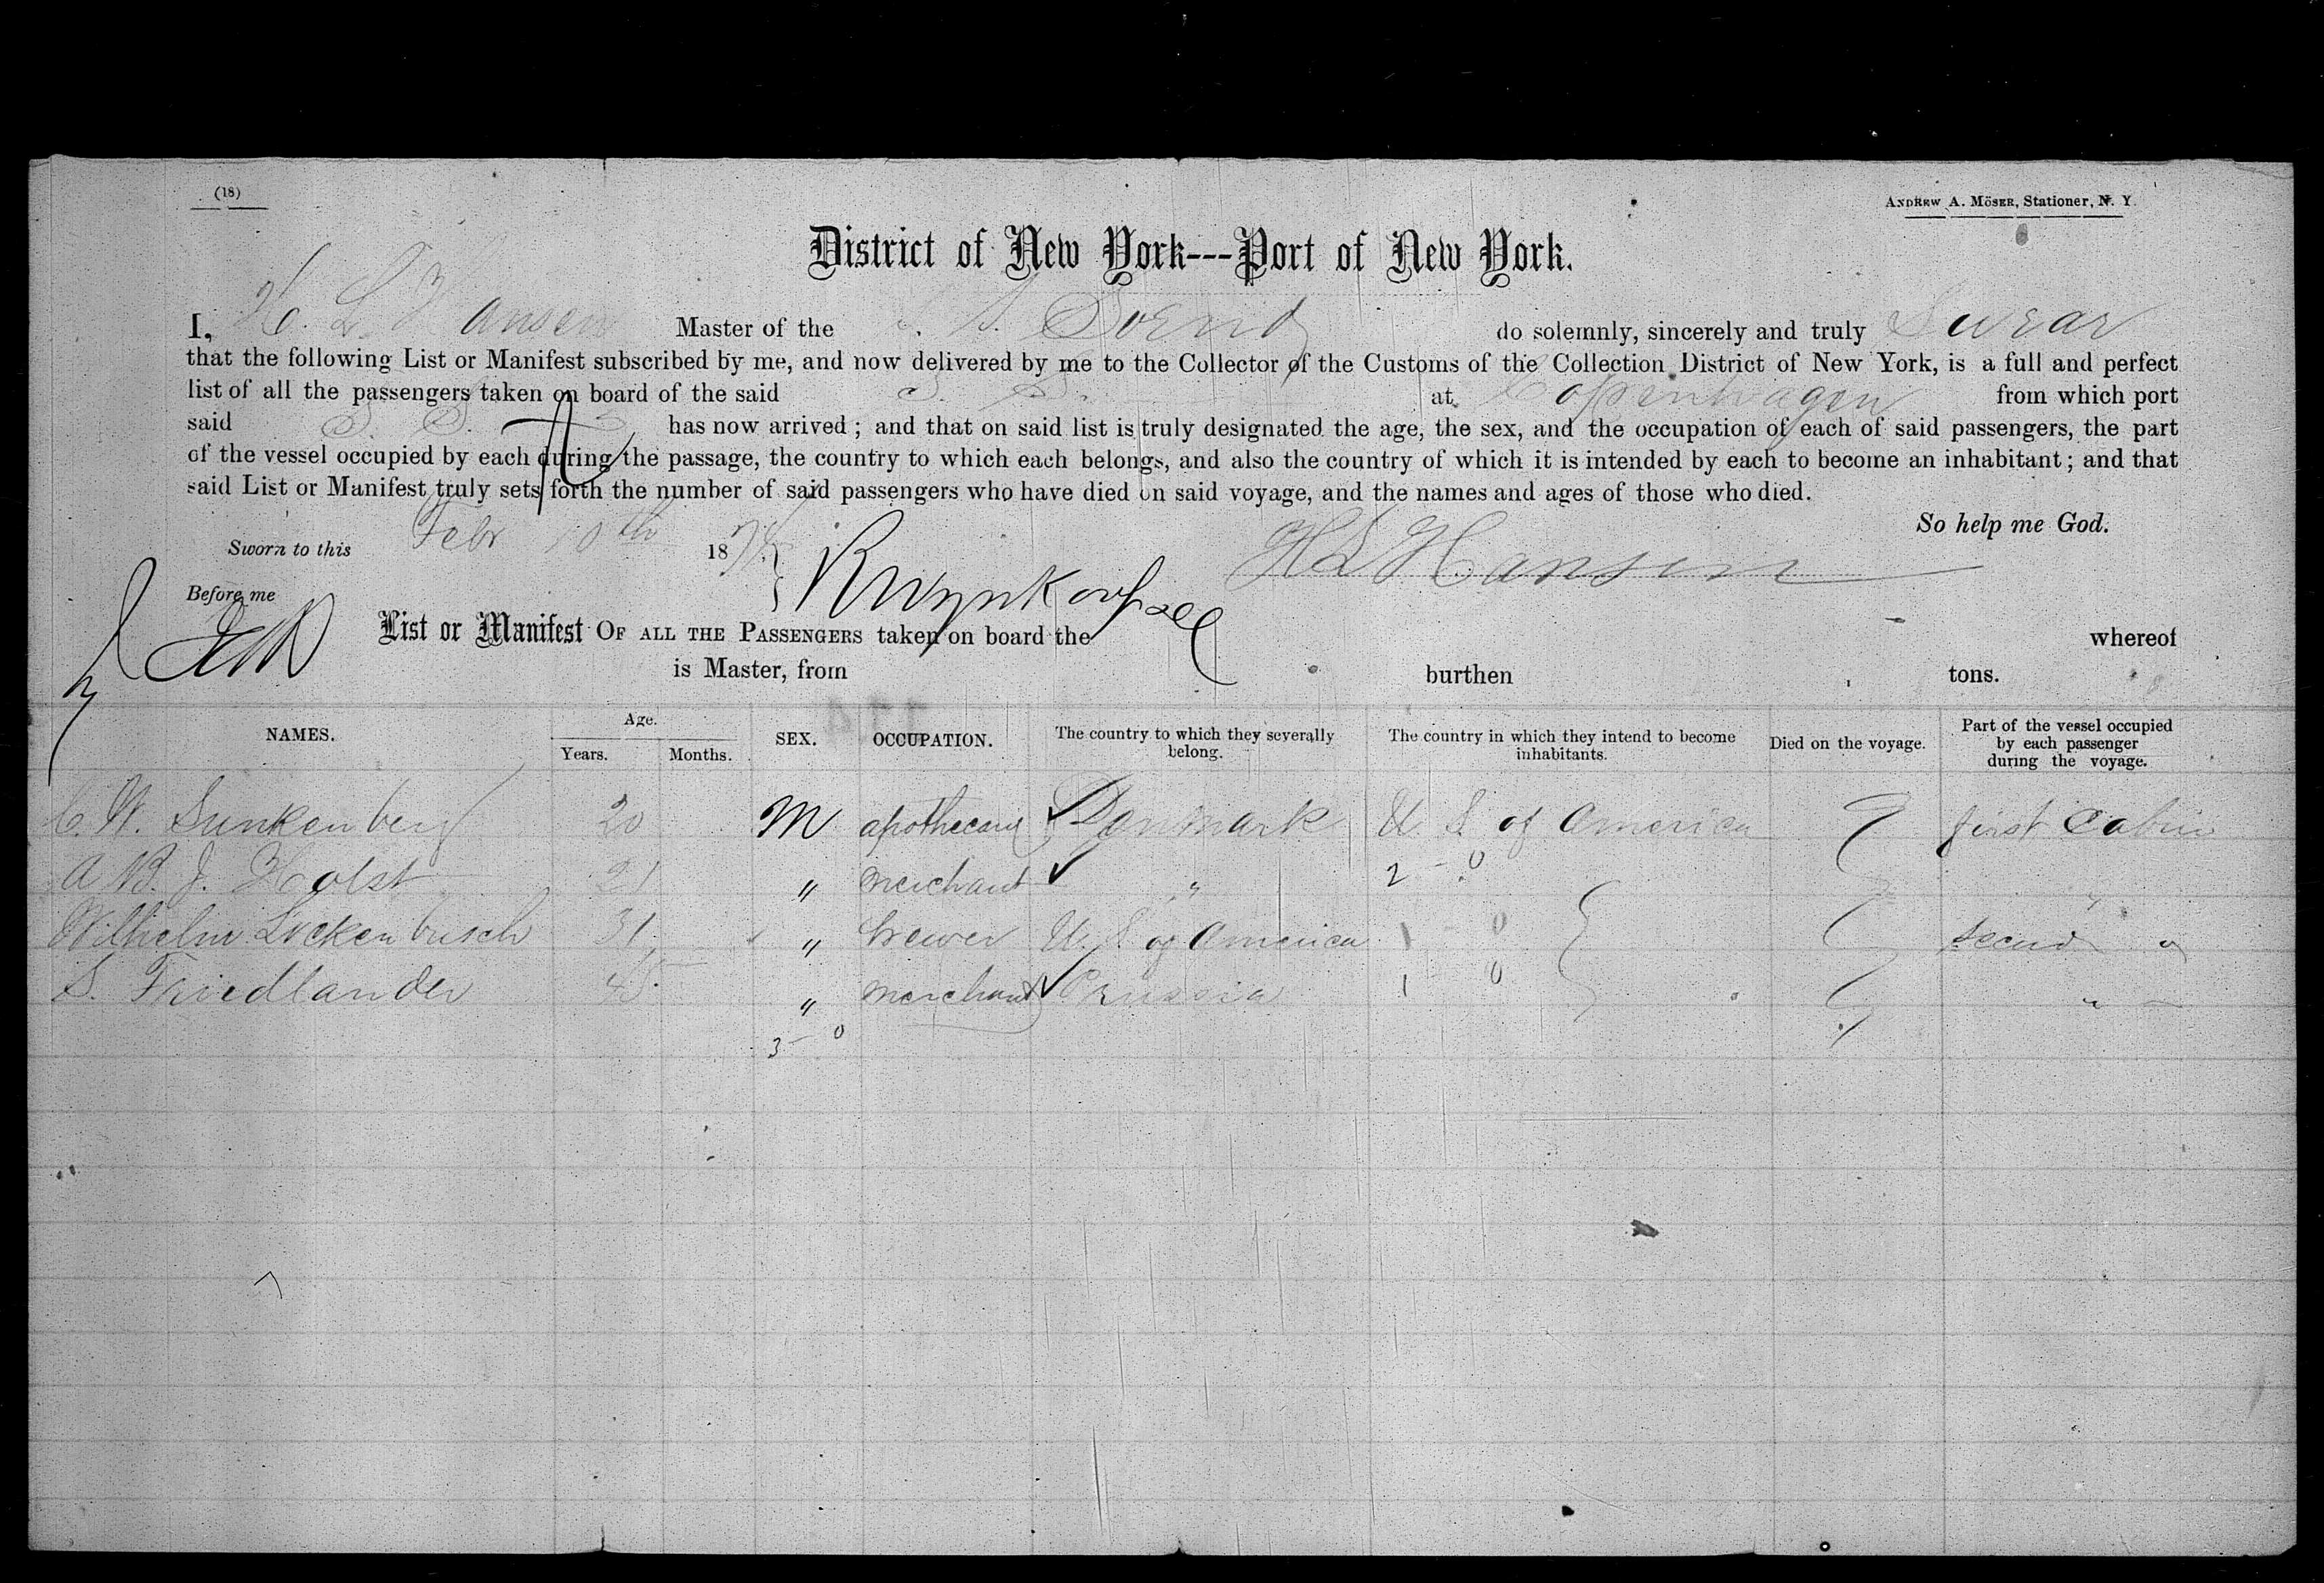 (18)
ANDREW A. MÖSER, Stationer, N. Y.
District of New York---Port of New York.
I, H. L. Hansen Master of the S. do solemnly, sincerely and truly Swear
that the following List or Manifest subscribed by me, and now delivered by me to the Collector of the Customs of the Collection District of New York, is a full and perfect
list of all the passengers taken on board of the said S. S. at Copenhagen from which port
said S. S. has now arrived ; and that on said list is truly designated the age, the sex, and the occupation of each of said passengers, the part
of the vessel occupied by each during the passage, the country to which each belongs, and also the country of which it is intended by each to become an inhabitant ; and that
said List or Manifest truly sets forth the number of said passengers who have died on said voyage, and the names and ages of those who died.
So help me God.
Sworn to this Febr 10th 187 H L Hansen
Before me
List or Manifest OF ALL THE PASSENGERS taken on board the whereof
is Master, from burthen tons.
NAMES. Age. Years. Months. SEX. OCCUPATION. The country to which they severally belong. The country in which they intend to become inhabitants. Died on the voyage. Part of the vessel occupied by each passenger during the voyage.
C. W. Sunkenberg 20 M apothecary Denmark U S of America first Cabin
A. B. J. Holst 21 " merchant " 2 - 0 "
Wilhelm Lückenbusch 31 " brewer U. S. of America 1 - 0 second "
S. Friedlander 45 " merchant Prussia 1 0 "
3 - 0